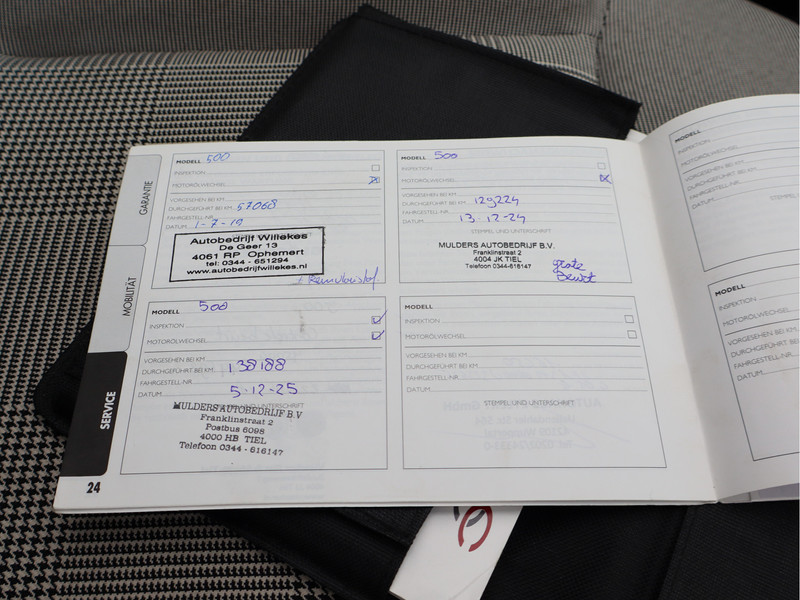 GARANTIE
MOBILITÄT
SERVICE
24
MODELL 500
INSPEKTION
MOTORÖLWECHSEL
VORGESEHEN BEI KM
DURCHGEFÜHRT BEI KM 57068
FAHRGESTELL-NR.
DATUM 1-7-19
Autobedrijf Willekes
De Geer 13
4061 RP Ophemert
tel: 0344 - 651294
www.autobedrijfwillekes.nl
MODELL 500
INSPEKTION
MOTORÖLWECHSEL
VORGESEHEN BEI KM
DURCHGEFÜHRT BEI KM 129224
FAHRGESTELL-NR.
DATUM 13-12-24
STEMPEL UND UNTERSCHRIFT
MULDERS AUTOBEDRIJF B.V.
Franklinstraat 2
4004 JK TIEL
Telefoon 0344-616147
grote
Beurt
MODELL 500
INSPEKTION
MOTORÖLWECHSEL
VORGESEHEN BEI KM
DURCHGEFÜHRT BEI KM 138188
FAHRGESTELL-NR.
DATUM 5-12-25
UND UNTERSCHRIFT
MULDERS AUTOBEDRIJF B.V
Franklinstraat 2
Postbus 6098
4000 HB TIEL
Telefoon 0344 - 616147
MODELL
INSPEKTION
MOTORÖLWECHSEL
VORGESEHEN BEI KM
DURCHGEFÜHRT BEI KM
FAHRGESTELL-NR.
DATUM
STEMPEL UND UNTERSCHRIFT
MODELL
INSPEKTION
MOTORÖLWECHSEL
VORGESEHEN BEI KM
DURCHGEFÜHRT
FAHRGESTELL-NR.
DATUM
STEMPEL
MODELL
INSPEKTION
MOTORÖLWECHSEL
VORGESEHEN BEI
DURCHGEFÜHRT BEI
FAHRGESTELL-NR.
DATUM